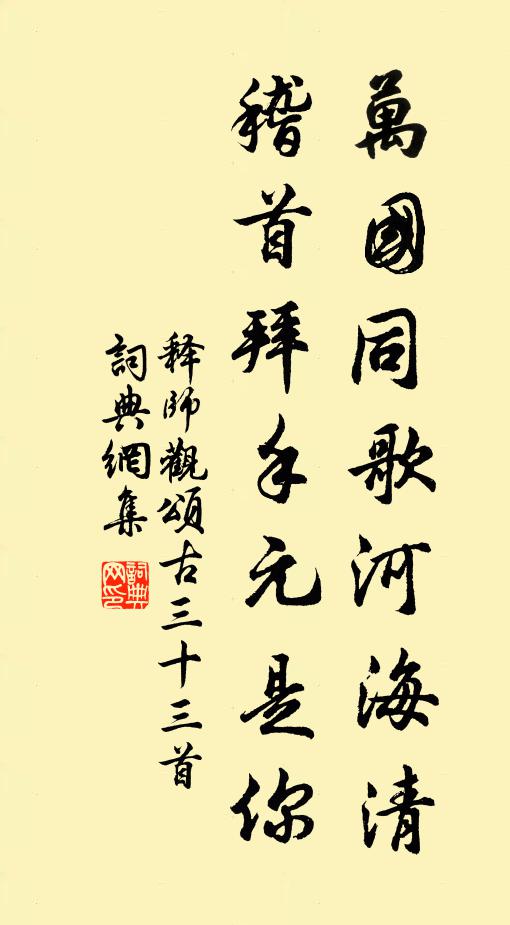 萬國同歌河海清
稽首拜手元是你
释師觀頌古三十三首
詞典網集
詞典网印